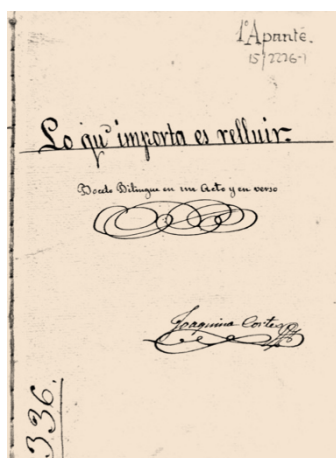 1º Apunte.
15/2226-1
Lo qu'importa es relluir.
Boceto Bilingue en un Acto y en verso
Joaquina Cortes
336.